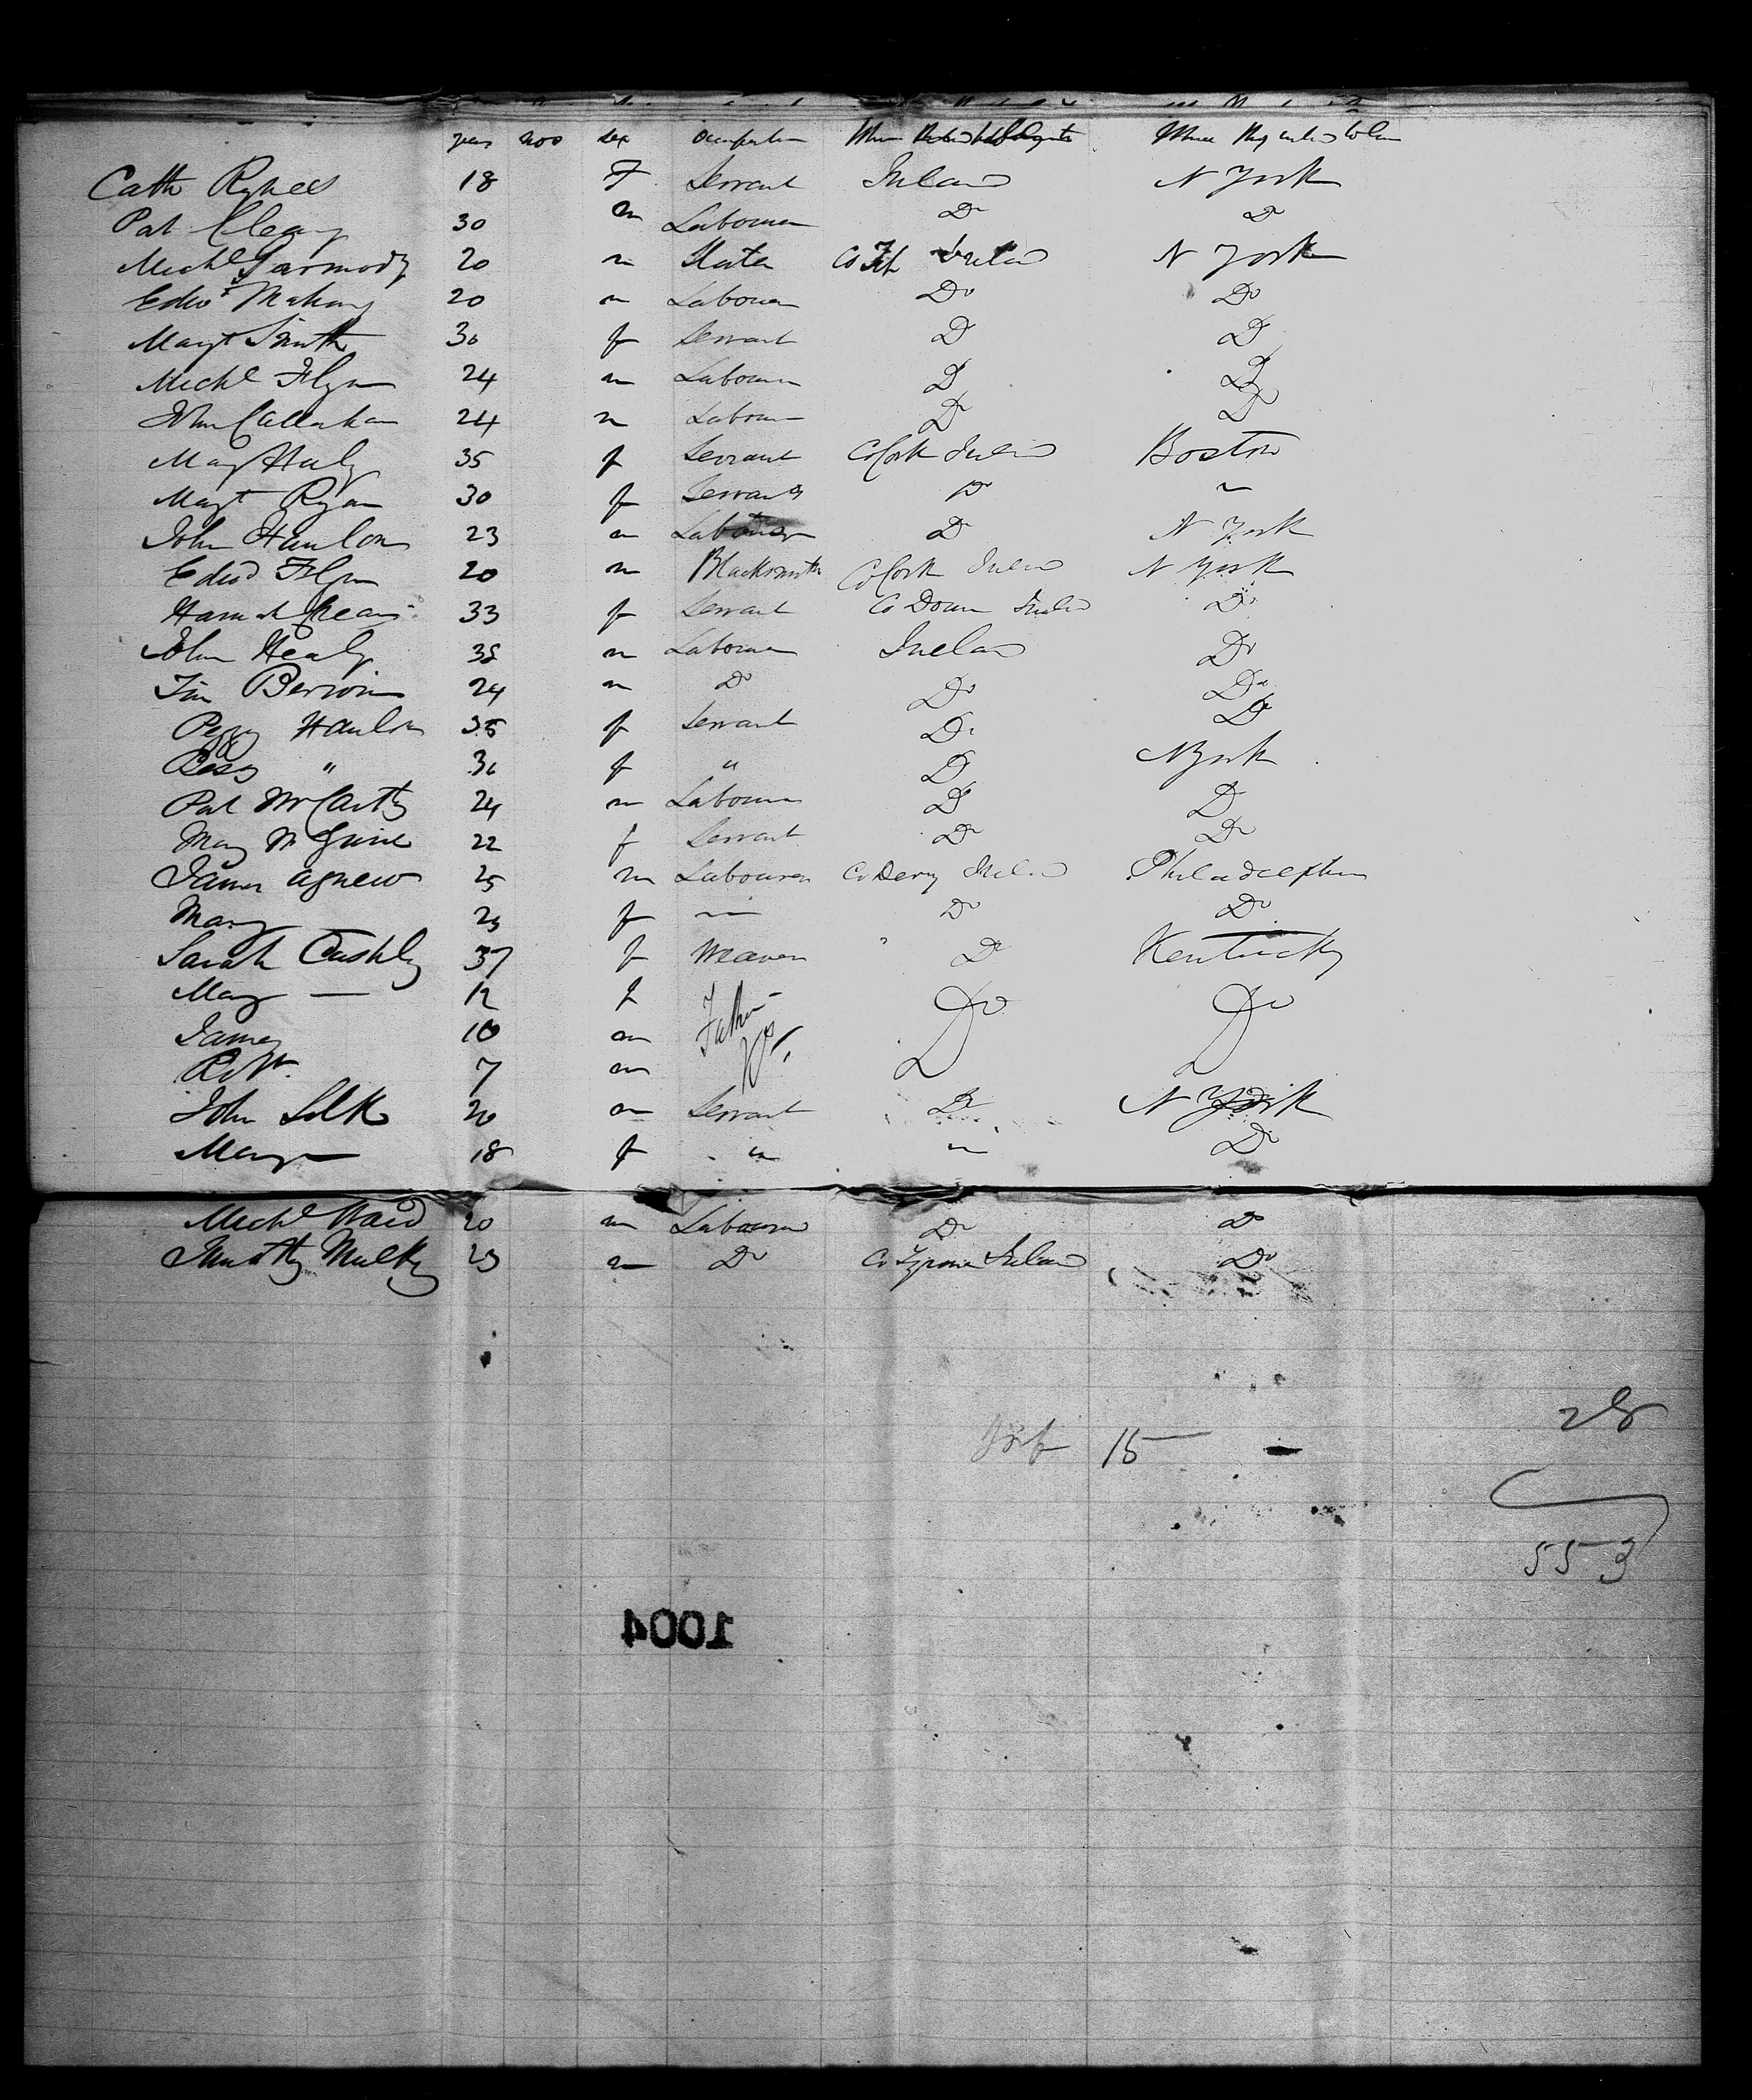 years mos sex Occupation
Cath 18 F Servant Ireland N York
Pat Cleary 30 m Labourer Do Do
Michl Garmody 20 m Slater Co Ireland N York
Edwd Mahony 20 m Labourer Do Do
Margt Smith 30 f Servant Do Do
Michl Flyn 24 m Labourer Do Do
John Callahan 24 m Labourer Do Do
Mary Haly 35 f Servant Co Cork Ireland Boston
Margt Ryan 30 f Servant Do "
John Hanlon 23 m Labourer Do N York
Edwd Flyn 20 m Blacksmith Co Cork Ireland N York
Hannah 33 f Servant Co Down Ireland Do
John Healy 35 m Labourer Ireland Do
Tim 24 m Do Do Do
Peggy Hanlon 35 f Servant Do Do
Bessy " 30 f " Do N York
Pat McCarthy 24 m Labourer Do Do
Mary McGuire 22 f Servant Do Do
James Agnew 25 m Labourer Co Derry Ireland Philadelphia
Mary — 25 f — Do Do
Sarah Cushly 37 f Weaver Do Kentucky
Mary — 12 f Do Do
James 10 m
Robt. 7 m
John Silk 20 m Servant Do N York
Mary — 18 f " " Do
Michl Ward 20 m Labourer Do Do
Timothy Mulky 23 m Do Co Tyrone Ireland Do
28
15
553
1004